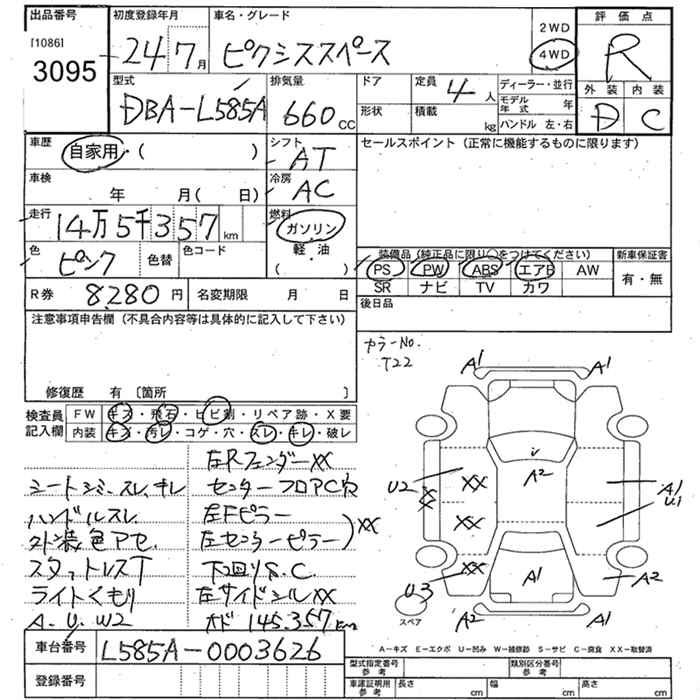 出品番号 初度登録年月 車名・グレード 2WD 評価点
[1086] 3095 24 7月 ピクシススペース 4WD R
外装 内装
D C
型式 排気量 ドア 定員 4人 ディーラー・並行
DBA-L585A 660cc 形状 積載 kg モデル年式 年
ハンドル 左・右
車歴 自家用 ( ) シフト AT セールスポイント (正常に機能するものに限ります)
車検 年 月 ( 日) 冷房 AC
走行 14万5千357km 燃料 ガソリン
軽・油
( )
色 ピンク 色替 色コード
装備品 (純正品に限り○をつけてください) 新車保証書
PS PW ABS エアB AW 有・無
SR ナビ TV カワ
R券 8280円 名変期限 月 日 後日品
注意事項申告欄 (不具合内容等は具体的に記入して下さい)
カラーNo.
T22
修復歴 有 〔箇所 〕
検査員記入欄 FW キズ・飛石・ヒビ割・リペア跡・X要
内装 キズ・汚レ・コゲ・穴・スレ・キレ・破レ
左Rフェンダー XX
シートシミ、スレ、キレ センターフロアC穴
ハンドルスレ 左Fピラー
外装色アセ 左センターピラー XX
スタットレスT 下回りS.C.
ライトくもり 左サイドシルXX
A.U.W2 オド 145.357km
A1 A1
i
A2
U2 XX XX A1 U1
XX
U3 XX A1 A2
A2 A1
スペア
A-キズ E-エクボ U-凹み W-補修跡 S-サビ C-腐食 XX-取替済
車台番号 L585A-0003626
登録番号
型式指定番号 参考 類別区分番号 参考
車庫証明用 参考 長さ cm 幅 cm 高さ cm